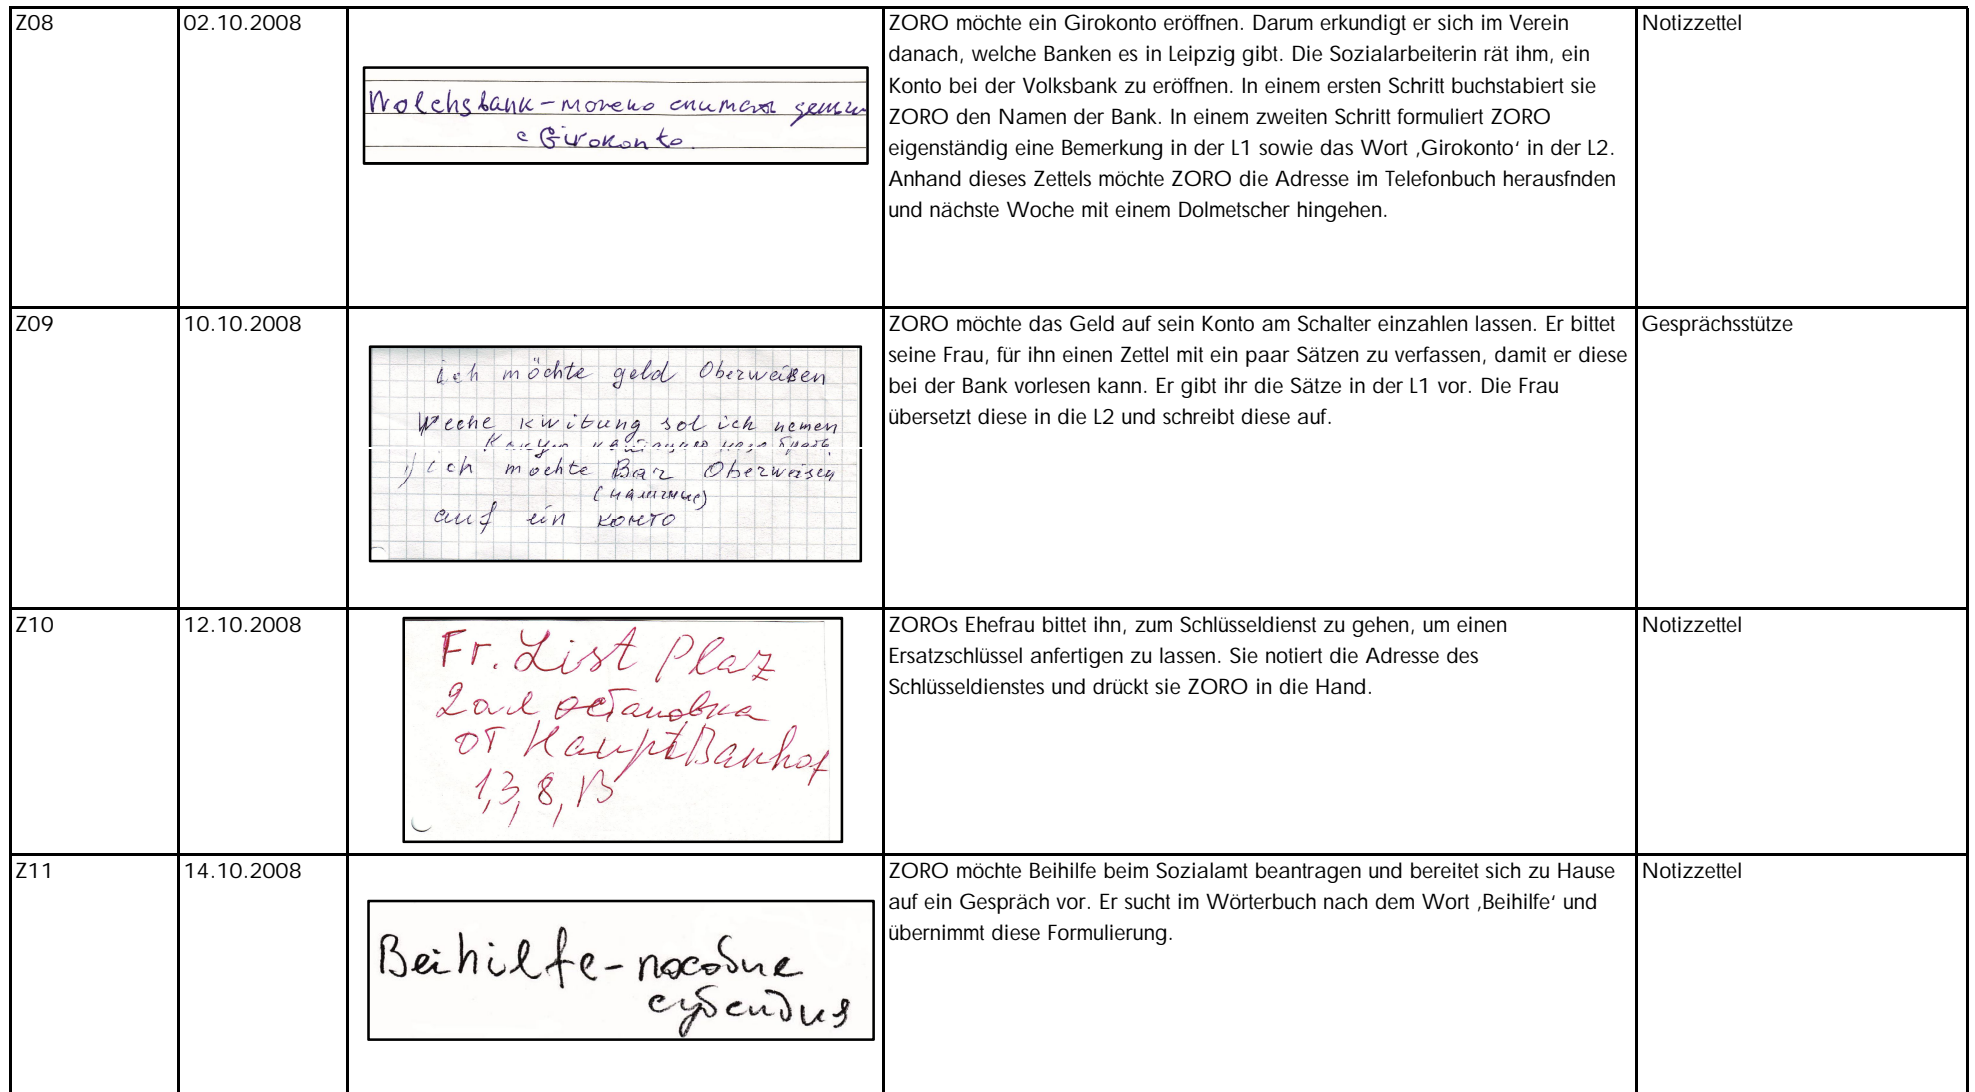 Z08
02.10.2008
Wolchsbank - можно снимать деньги
с Girokonto.
ZORO möchte ein Girokonto eröffnen. Darum erkundigt er sich im Verein
danach, welche Banken es in Leipzig gibt. Die Sozialarbeiterin rät ihm, ein
Konto bei der Volksbank zu eröffnen. In einem ersten Schritt buchstabiert sie
ZORO den Namen der Bank. In einem zweiten Schritt formuliert ZORO
eigenständig eine Bemerkung in der L1 sowie das Wort ‚Girokonto‘ in der L2.
Anhand dieses Zettels möchte ZORO die Adresse im Telefonbuch herausfnden
und nächste Woche mit einem Dolmetscher hingehen.
Notizzettel
Z09
10.10.2008
ich möchte geld Oberweisen
Weche kwitung sol ich nemen
Какую квитанцию надо брать
1) ich mochte Bar Oberweisen
(наличные)
auf ein конто
ZORO möchte das Geld auf sein Konto am Schalter einzahlen lassen. Er bittet
seine Frau, für ihn einen Zettel mit ein paar Sätzen zu verfassen, damit er diese
bei der Bank vorlesen kann. Er gibt ihr die Sätze in der L1 vor. Die Frau
übersetzt diese in die L2 und schreibt diese auf.
Gesprächsstütze
Z10
12.10.2008
Fr. List Plaz
2ая остановка
от HauptBanhof
1, 3, 8, 13
ZOROs Ehefrau bittet ihn, zum Schlüsseldienst zu gehen, um einen
Ersatzschlüssel anfertigen zu lassen. Sie notiert die Adresse des
Schlüsseldienstes und drückt sie ZORO in die Hand.
Notizzettel
Z11
14.10.2008
Beihilfe - пособие
субсидия
ZORO möchte Beihilfe beim Sozialamt beantragen und bereitet sich zu Hause
auf ein Gespräch vor. Er sucht im Wörterbuch nach dem Wort ‚Beihilfe‘ und
übernimmt diese Formulierung.
Notizzettel